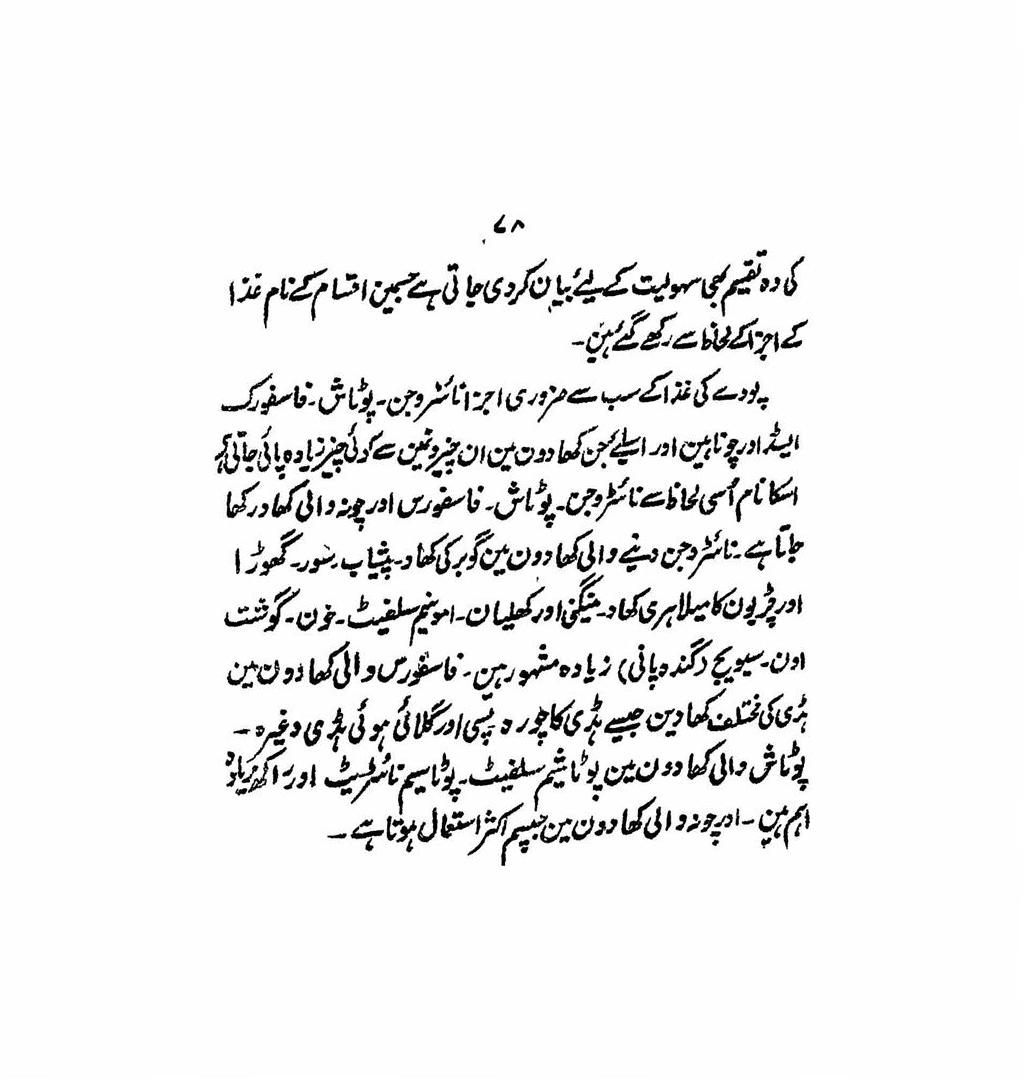 ۷۸
کی وہ تقسیم بھی سہولیت کے لیے بیان کر دی جاتی ہے جسمین اقسام کے نام غذا
کے اجزا کے لحاظ سے رکھے گئے ہین ۔
پودے کی غذا کے سب سے ضروری اجزا نائٹروجن ۔ پوٹاش ۔ فاسفورک
ایسڈ اور چونا ہین اور اسلیے جن کھادون مین ان چیزونمین سے کوئی چیز زیادہ پائی جاتی ہے
اسکا نام اُسی لحاظ سے نائٹروجن ۔ پوٹاش ۔ فاسفورس اور چونہ والی کھاد رکھا
جاتا ہے ۔ نائٹروجن دینے والی کھادون مین گوبر کی کھاد ۔ پیشاب ۔ سور ۔ گھوڑا
اور چڑیون کا میلا ہری کھاد ۔ مینگنی اور کھلیان ۔ امونیم سلفیٹ ۔ خون ۔ گوشت
اون ۔ سیویج (گندہ پانی) زیادہ مشہور ہین ۔ فاسفورس والی کھادون مین
ہڈی کی مختلف کھادین جیسے ہڈی کا چورہ پسی اور گلائی ہوئی ہڈی وغیرہ ۔
پوٹاش والی کھادون مین پوٹاشیم سلفیٹ ۔ پوٹاسیم نائٹریٹ اور راکھ زیادہ
اہم ہین ۔ اور چونہ والی کھادون مین جپسم اکثر استعمال ہوتا ہے ۔